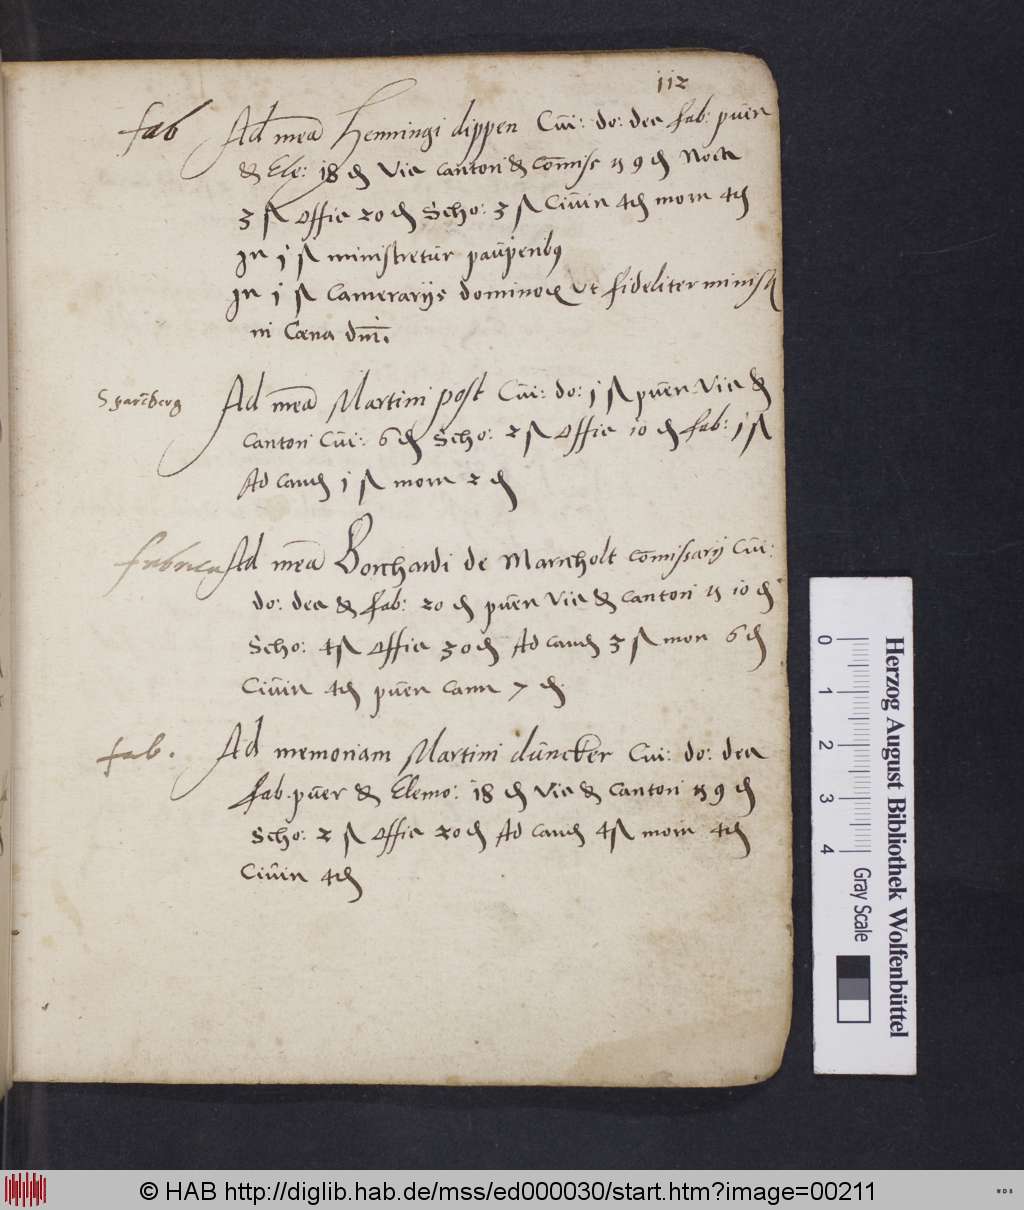 112
fab Ad mēa Henningi dippen Cui: do: dec fab: puer
& Ele: 18 ₰ Vic cantori & Comiss 9 ₰ Noct
3 ß Offic 20 ₰ Scho: 3 ß Civin 4₰ mon 4₰
In 1 ß ministretur pauperib9
In 1 ß Camerarijs dominoꝝ vt fideliter minist
in Cœna dm̄i.
Ad mēa Martini post Cui: do: 1 ß puer Vic &
cantori Cui: 6 ₰ Scho: 2 ß Offic 10 ₰ fab: 1 ß
Ad cand 1 ß mon 2 ₰
fabrica Ad mēa Borchardi de Marnholt comissarij Cui:
do: dec & fab: 20 ₰ puer Vic & cantori 10 ₰
Scho: 4 ß Offic 30 ₰ Ad cand 3 ß mon 6 ₰
Civin 4₰ puer cann 7 ₰
fab. Ad memoriam Martini düncker Cui: do: dec
fab. puer & Elemo: 18 ₰ Vic & Cantori 9 ₰
Scho: 2 ß Offic 20 ₰ Ad cand 4 ß mon 4₰
Civin 4₰
0 1 2 3 4
Gray Scale
Herzog August Bibliothek Wolfenbüttel
© HAB http://diglib.hab.de/mss/ed000030/start.htm?image=00211